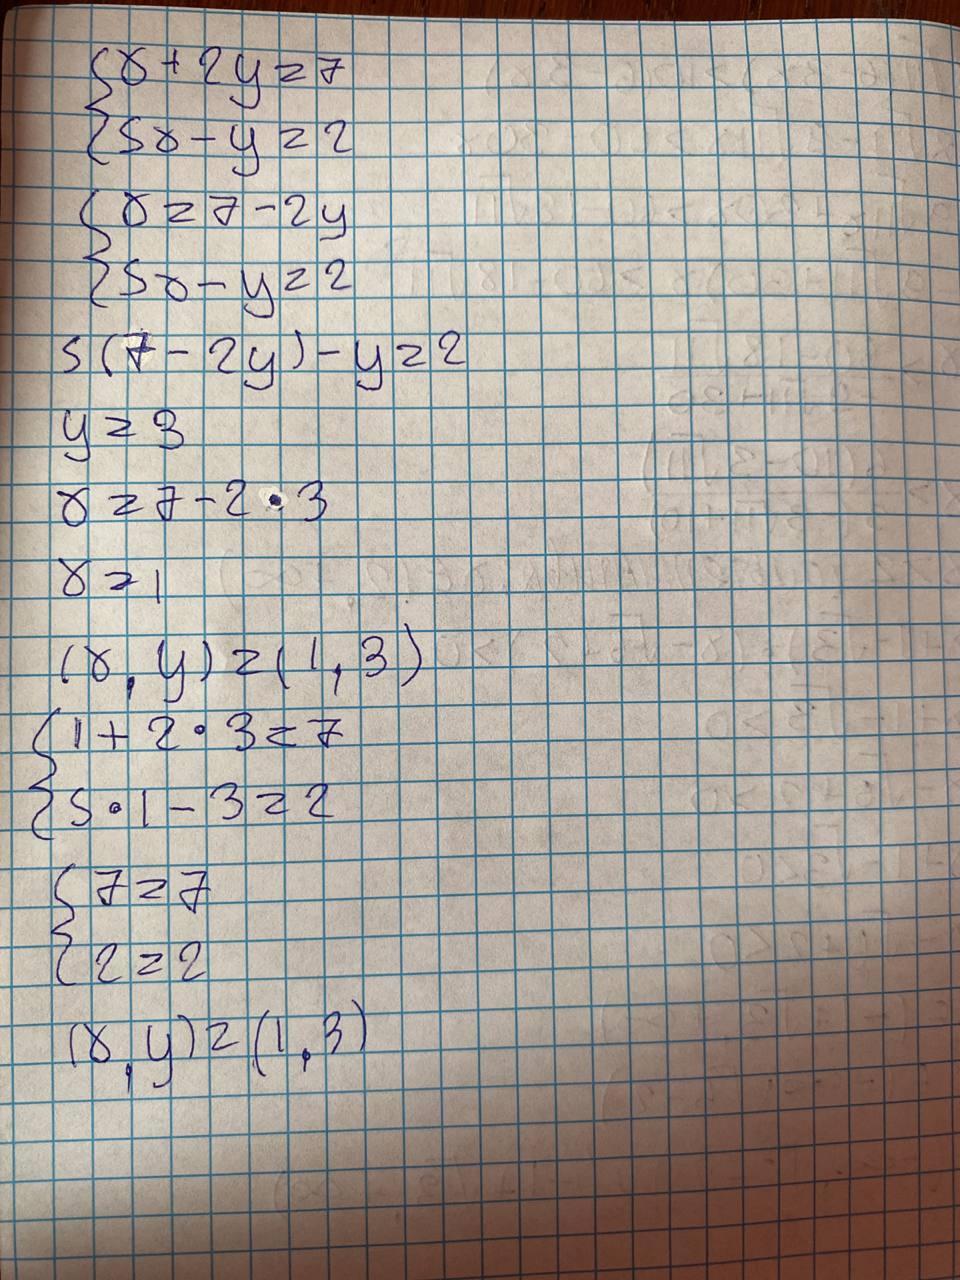 {x+2y=7
{5x-y=2
{x=7-2y
{5x-y=2
5(7-2y)-y=2
y=3
x=7-2·3
x=1
(x,y)=(1,3)
{1+2·3=7
{5·1-3=2
{7=7
{2=2
(x,y)=(1,3)